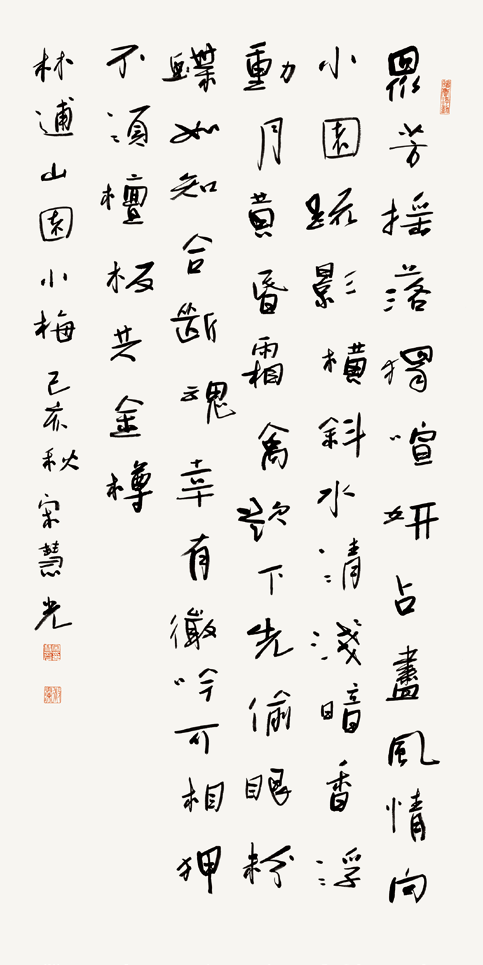 眾芳搖落獨喧妍占盡風情向
小園疏影橫斜水清淺暗香浮
動月黃昏霜禽欲下先偷眼粉
蝶如知合斷魂幸有微吟可相狎
不須檀板共金樽
林逋山園小梅己亥秋宋慧光